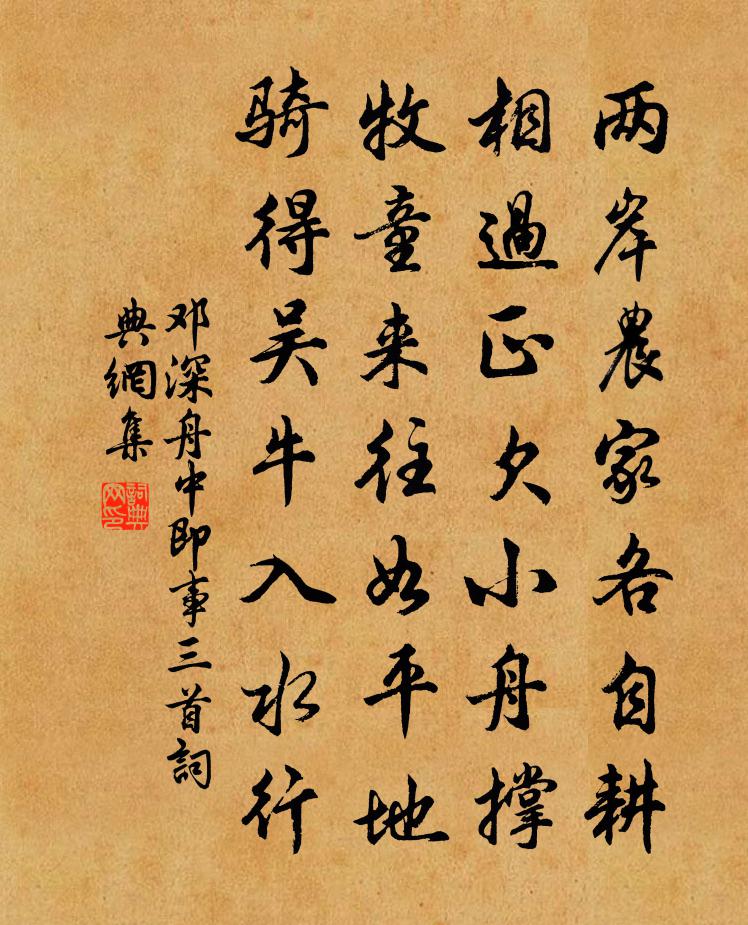 两岸農家各自耕
相過正欠小舟撑
牧童来往如平地
骑得吴牛入水行
邓深舟中即事三首詞
典網集
詞典網印